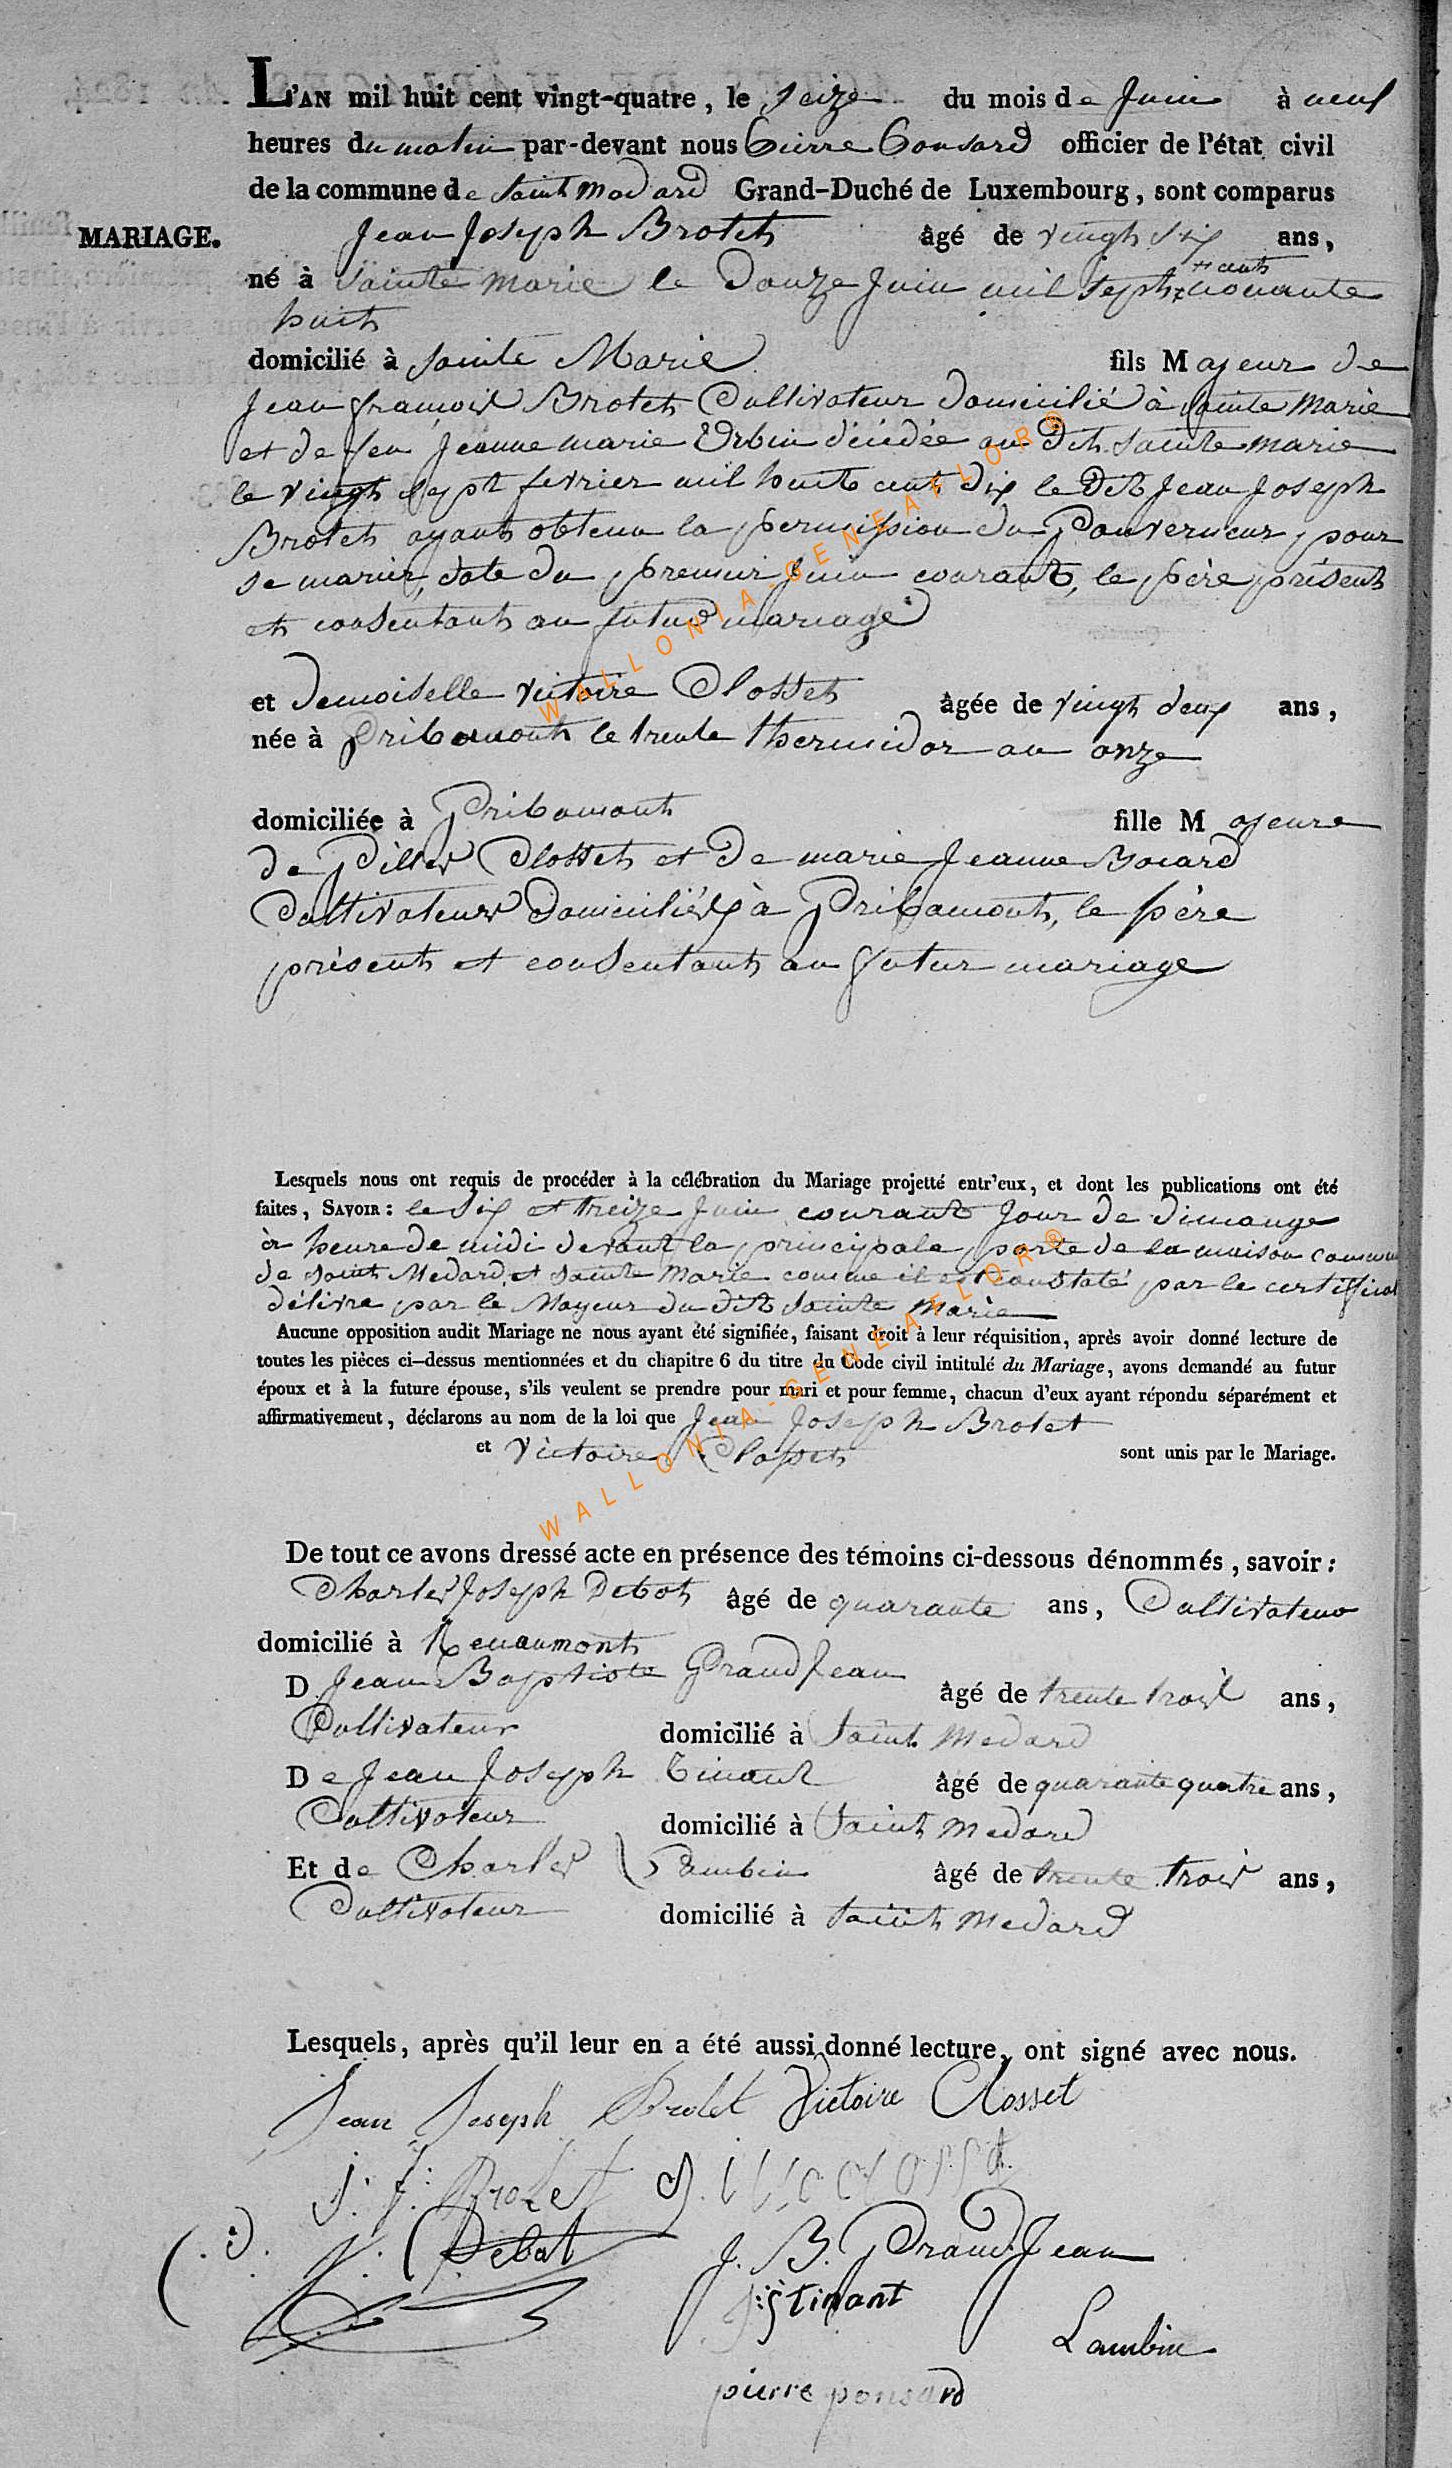 L'AN mil huit cent vingt-quatre, le seize du mois de Juin à neuf
heures du matin par-devant nous Pierre Ponsard officier de l'état civil
de la commune de Saint Madard Grand-Duché de Luxembourg, sont comparus
MARIAGE.
Jean Joseph Brotet âgé de vingt six ans,
né à Sainte Marie le Douze Juin mil sept cents nonante
huit
domicilié à Sainte Marie fils Majeur de
Jean françois Brotet Cultivateur domicilié à Sainte Marie
et de feu Jeanne marie Urbin décédée au dit Sainte marie
le vingt sept fevrier mil huit cent dix le dit Jean Joseph
Brotet ayant obtenu la permission du Gouverneur pour
se marier, date du premier Juin courant, le père présent
et consentant au futur mariage
et Demoiselle Victoire Closset âgée de vingt deux ans,
née à Gribomont le trente thermidor an onze
domiciliée à Gribomont fille Majeure
de Gilles Closset et de marie Jeanne
Cultivateurs domiciliés à Gribamont, le père
présent et consentant au futur mariage
Lesquels nous ont requis de procéder à la célébration du Mariage projetté entr'eux, et dont les publications ont été
faites, SAVOIR : le Six et treize Juin courant Jour de dimange
à heure de midi devant la principale porte de la maison
de Saint Medard et Sainte Marie comme il est constaté par le certificat
délivre par le Mayeur du dit Sainte Marie
Aucune opposition audit Mariage ne nous ayant été signifiée, faisant droit à leur réquisition, après avoir donné lecture de
toutes les pièces ci-dessus mentionnées et du chapitre 6 du titre du Code civil intitulé du Mariage, avons demandé au futur
époux et à la future épouse, s'ils veulent se prendre pour mari et pour femme, chacun d'eux ayant répondu séparément et
affirmativement, déclarons au nom de la loi que Jean Joseph Brotet
et Victoire Closset sont unis par le Mariage.
De tout ce avons dressé acte en présence des témoins ci-dessous dénommés, savoir :
Charles Joseph Debot âgé de quarante ans, Cultivateur
domicilié à Renaumont
D Jean Baptiste GrandJean âgé de trente trois ans,
Cultivateur domicilié à Saint Medard
De Jean Joseph Tinant âgé de quarante quatre ans,
Cultivateur domicilié à Saint Medard
Et de Charles Lambin âgé de trente trois ans,
Cultivateur domicilié à Saint Medard
Lesquels, après qu'il leur en a été aussi donné lecture, ont signé avec nous.
Jean Joseph Brolet Victoire Closset
J. f. Brolet
Debot J. B. GrandJean
tinant
Lambin
pierre ponsard
WALLONIA-GENEAFLOR®
WALLONIA-GENEAFLOR®